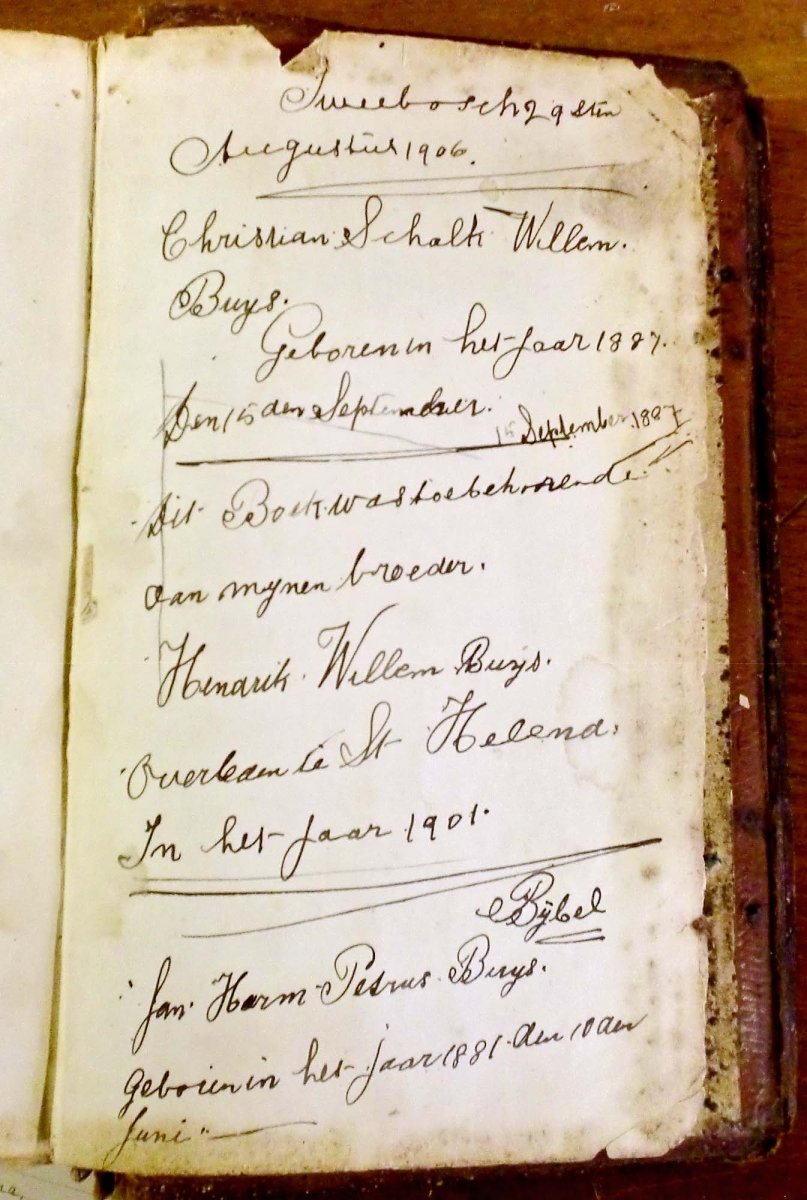 Tweebosch 29sten
Augustus 1906.
Christian Schalk Willem.
Buys.
Geboren in het jaar 1887.
Den 15den September.
15 September 1887
Dit Boek was toebehoorende
aan mynen broeder.
Hendrik Willem Buys.
Overleden te St Helena.
In het jaar 1901.
Bijbel
Jan Harm Petrus Buys.
Geboren in het jaar 1881 den 10den
Juni